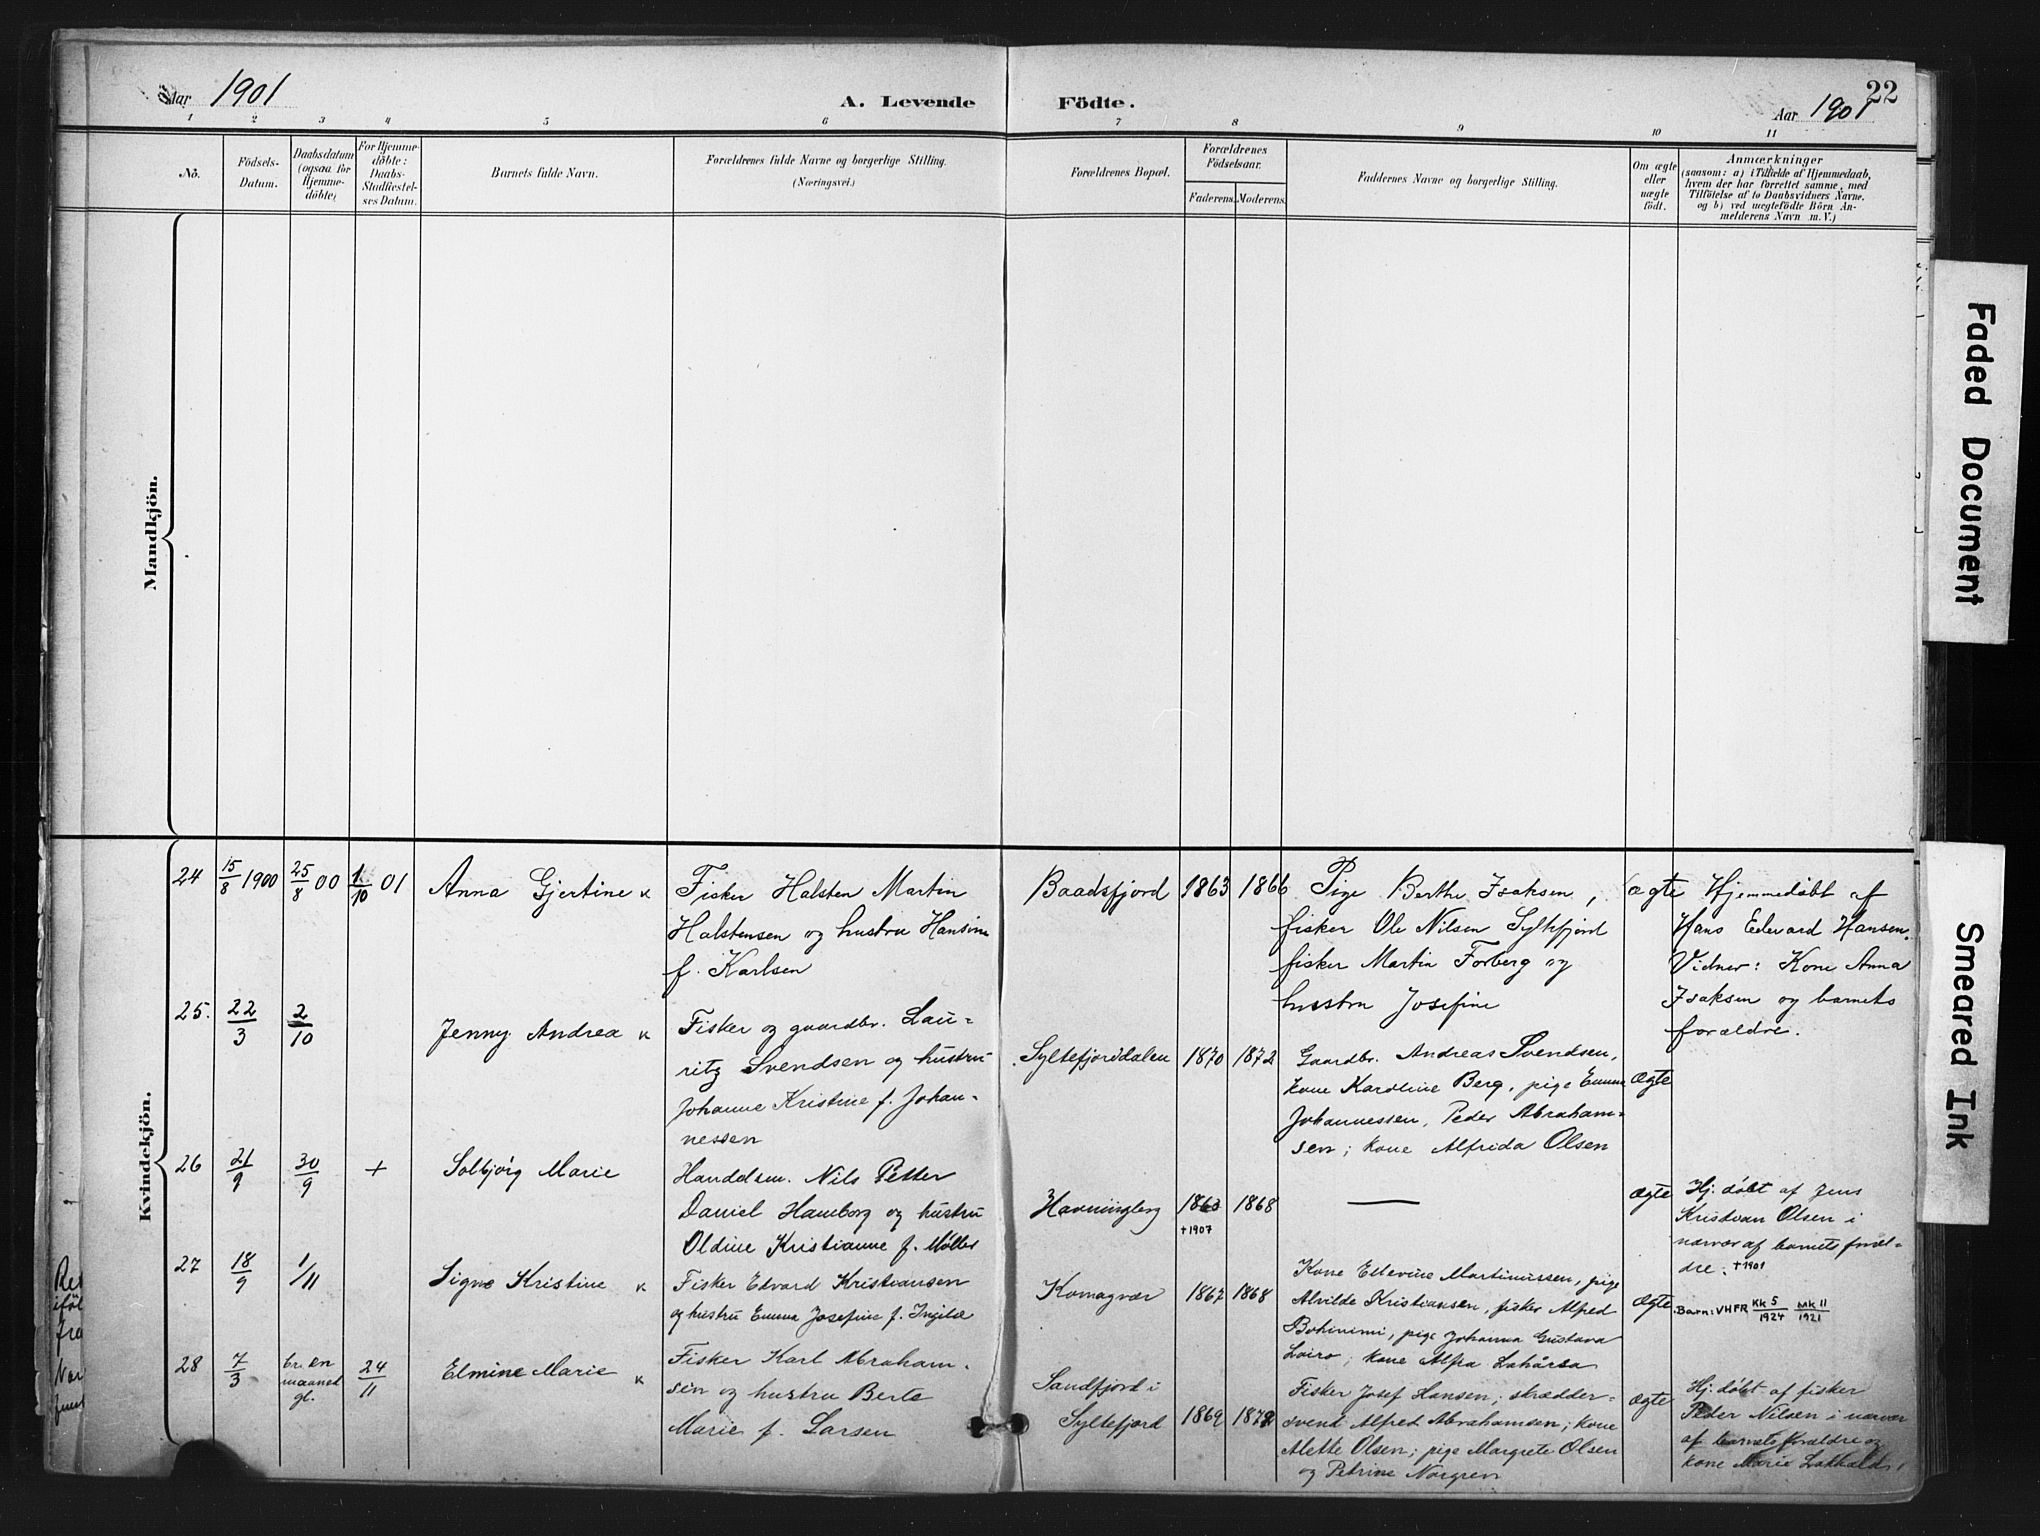 Aar 1901
A. Levende Födte.
22
Aar 1901
1 2 3 4 5 6 7 8 9 10 11
No.
Födsels-Datum.
Daabsdatum (ogsaa for Hjemme-döbte)
For Hjemme-döbte: Daabs-Stadfæstel-ses Datum.
Barnets fulde Navn.
Forældrenes fulde Navne og borgerlige Stilling.
(Næringsvei.)
Forældrenes Bopæl.
Forældrenes Födselsaar.
Faderens. Moderens.
Faddernes Navne og borgerlige Stilling.
Om ægte eller uægte födt.
Anmærkninger
(saasom: a) i Tilfælde af Hjemmedaab,
hvem der har forrettet samme, med
Tilföielse af to Daabsvidners Navne,
og b) ved uægtefödte Börn An-
melderens Navn m. V.)
Mandkjön.
Kvindekjön.
24 15/8 1900 25/8 00 1/10 01 Anna Gjertine
Fisker Halsten Martin
Halstensen og hustru Hansine
f. Karlsen
Baadsfjord 1863 1866
Pige Berthe Isaksen,
fisker Ole Nilsen Syltefjord
fisker Martin Forberg og
hustru Josefine
ægte
Hjemmedöbt af
Hans Edevard Hansen.
Vidner: Kone Anna
Isaksen og barnets
forældre.
25. 22/3 2/10 Jenny Andrea
Fisker og gaardbr. Lau-
ritz Svendsen og hustru
Johanne Kristine f. Johan-
nessen
Syltefjorddalen 1870 1872
Gaardbr. Andreas Svendsen,
kone Karoline Berg, pige Emma
Johannessen, Peder Abraham-
sen; kone Alfrida Olsen
ægte
26 21/9 30/9 + Solbjörg Marie
Handelsm. Nils Petter
Daniel Hamborg og hustru
Oldine Kristianne f. Møller
Havningberg 1863 1868
+1907
—
ægte
Hj. döbt af Jens
Kristian Olsen i
nærvær af barnets foræl-
dre. +1901
27 18/9 1/11 Signe Kristine
Fisker Edvard Kristiansen
og hustru Emma Josefine f.
Komagvær 1867 1868
Kone Ellevine Martinussen, pige
Alvilde Kristiansen, fisker Alfred
pige Johanna Gustava
kone
ægte
Barn: VHFR Kk 5/1924 Mk 11/1921
28 7/3 br. en maaned gl. 24/11 Elmine Marie
Fisker Karl Abraham-
sen og hustru Berte
Marie f. Larsen
Sandfjord i
Syltefjord 1869 1872
Fisker Josef Hansen; skrædder-
svend Alfred Abrahamsen; kone
Alette Olsen; pige Margrete Olsen
og Petrine Norgren
ægte
Hj. döbt af fisker
Peder Nilsen i nærvær
af barnets forældre og
kone Marie
Faded Document
Smeared Ink